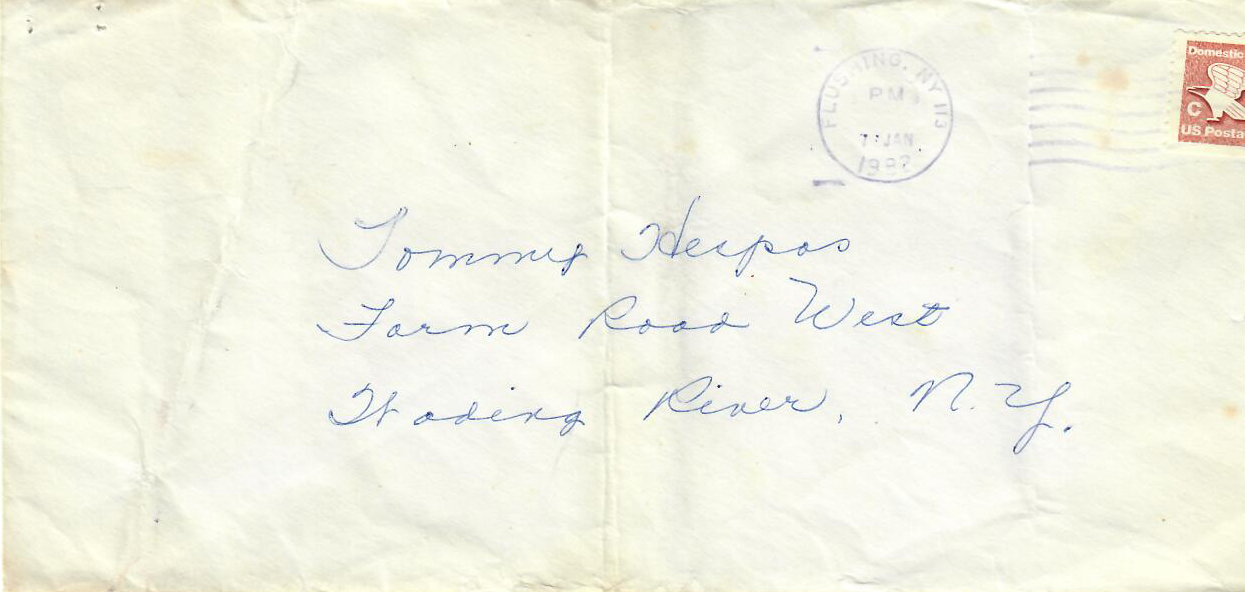 FLUSHING, NY 113
PM
JAN
1982
Domestic
C
US Posta
Tommy Hespos
Farm Road West
Wading River, N.Y.